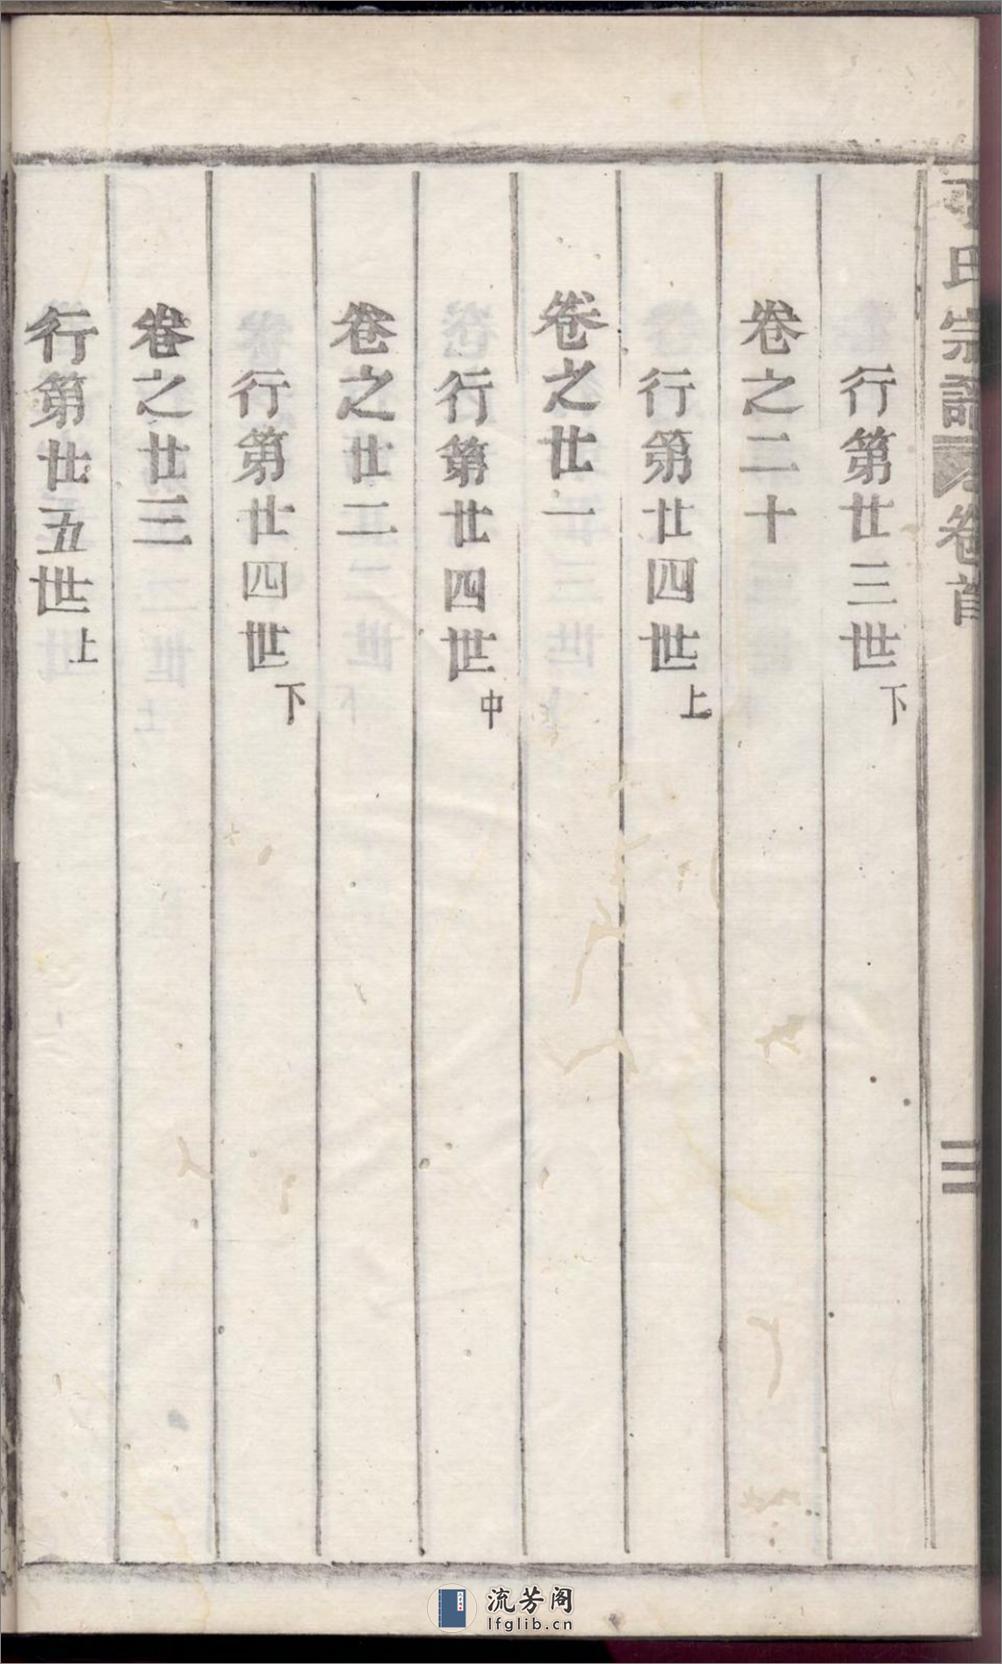 氏宗譜 卷首 三
行第廿三世下
卷之二十
行第廿四世上
卷之廿一
行第廿四世中
卷之廿二
行第廿四世下
卷之廿三
行第廿五世上
流芳阁
lfglib.cn